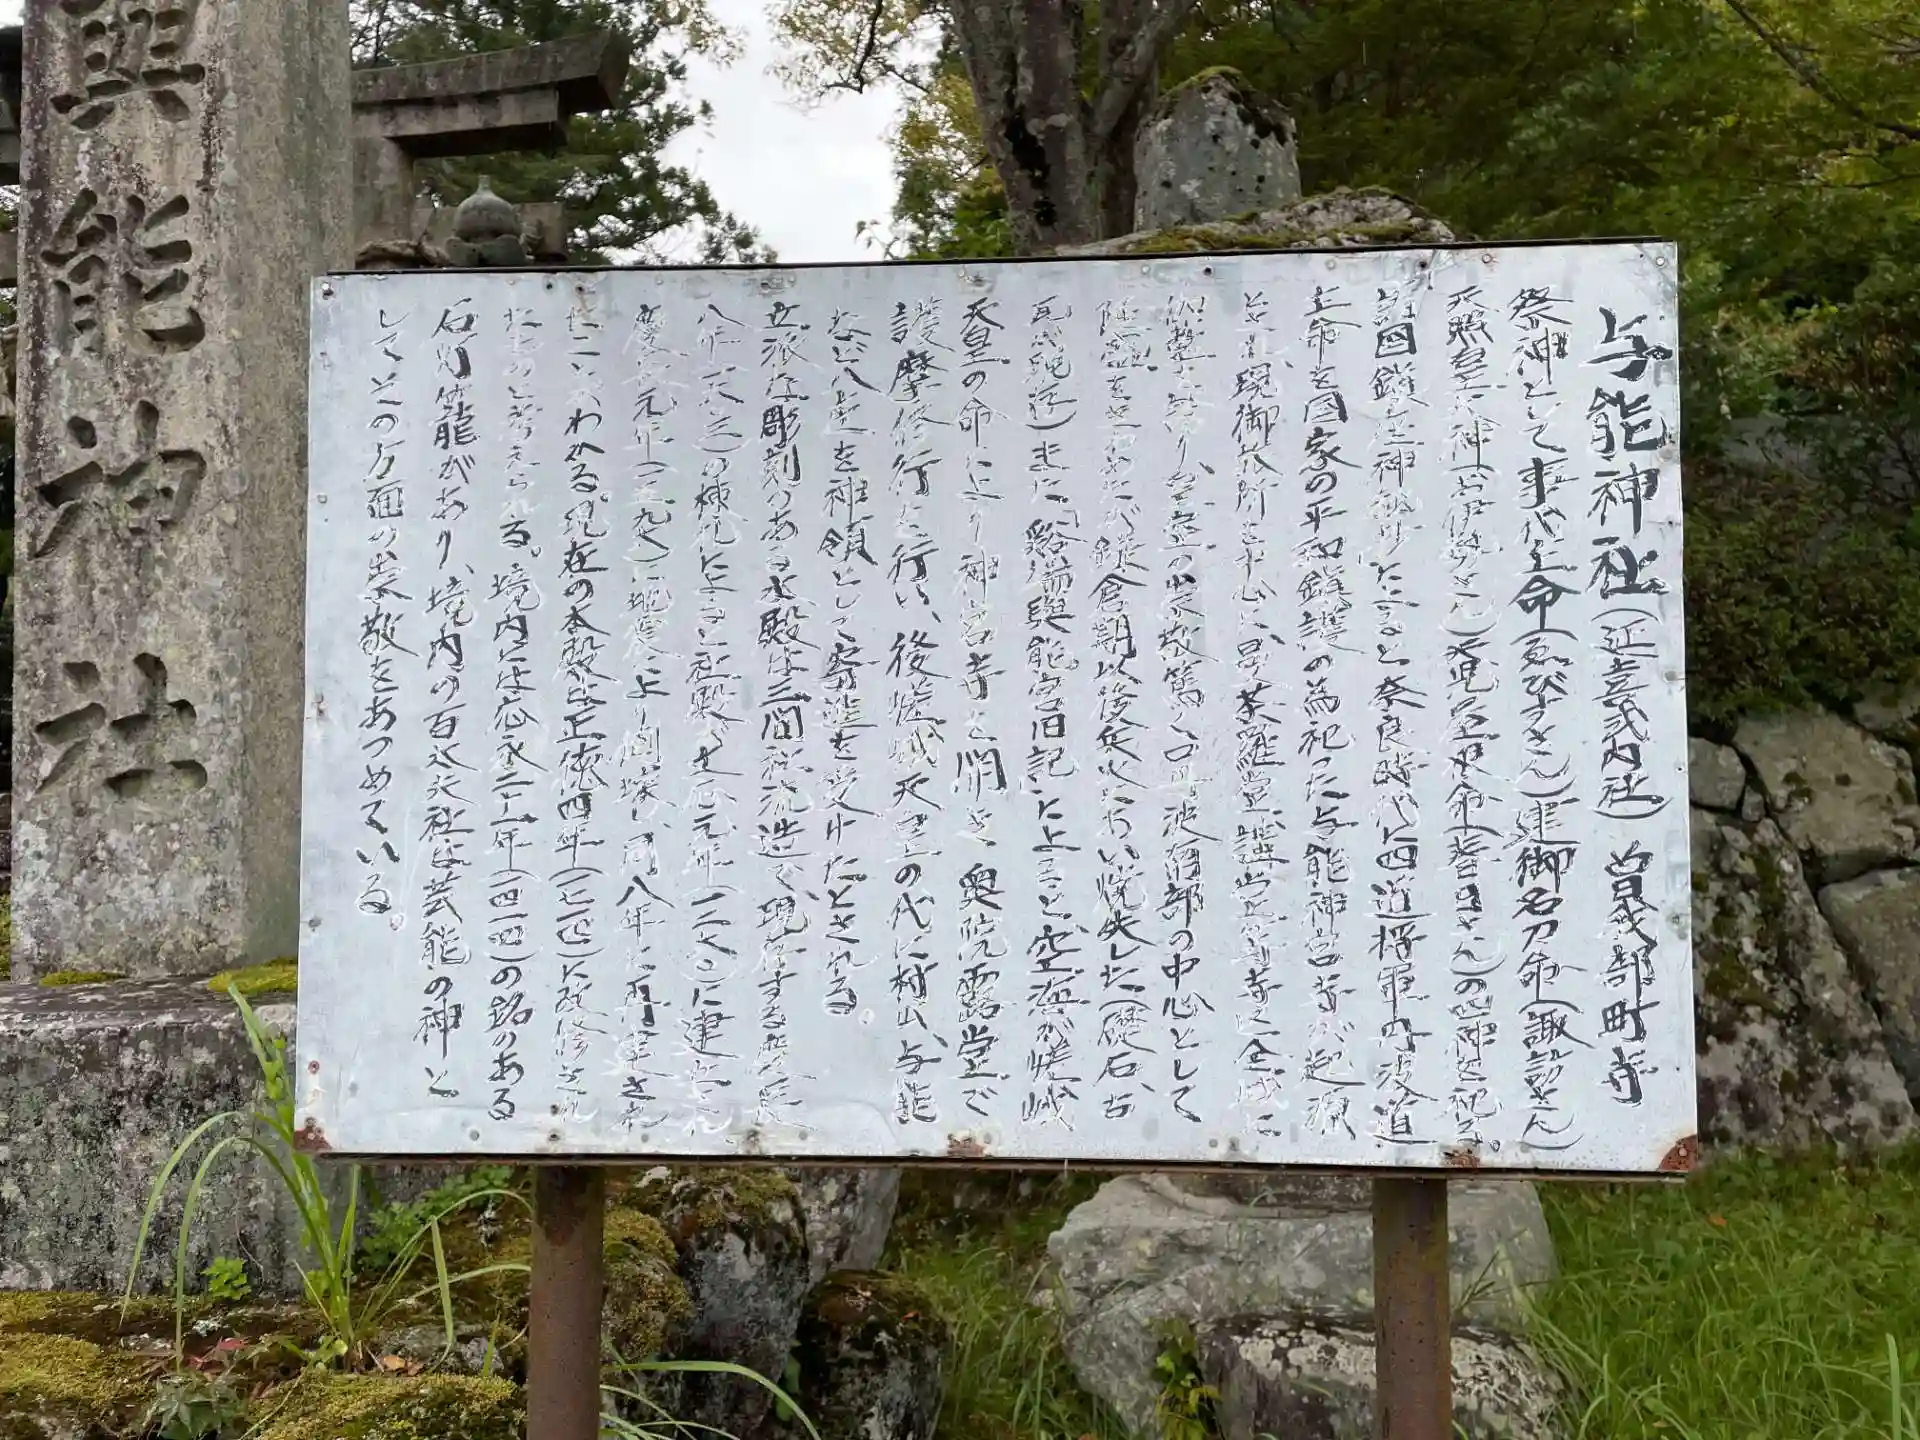 與能神社
与能神社(延喜式内社)曽我部町寺
祭神として事代主命(ゑびすさん)建御名刀命(諏訪さん)
天照皇大神(お伊勢さん)天児屋根命(春日さん)の四神を祀る。
諸国鎖座神秘抄によると奈良時代に四道将軍丹波道
主命を国家の平和鎮護の為祀った与能神宮寺が起源
現御旅所を中心に曼茶羅堂護
り皇室の崇敬篤く口丹波南部の中心として
隆盛をきわめたが鎌倉期以後兵火にあい焼失した(礎石、古
瓦式現存)また「谿嵐與能宮旧記」によると、空海が嵯峨
天皇の命により神宮寺を開き奥院露堂で
護摩修行を行い、後嵯峨天皇の代に村山、与能
など八庄を神領として寄進を受けたとされる。
立派な彫刻のある本殿は三間社流造で、現存する慶長
八年(一六〇三)の棟札によると社殿が文応元年(一二六〇)に建立され
慶長元年(一五九六)に地震により倒壊し、同八年に再建され
たことがわかる。現在の本殿は正徳四年(一七一四)に改修され
たものと考えられる。境内には応永二十一年(一四一四)の銘のある
石灯篭があり、境内の百太夫社は芸能の神と
してその方面の崇敬をあつめている。